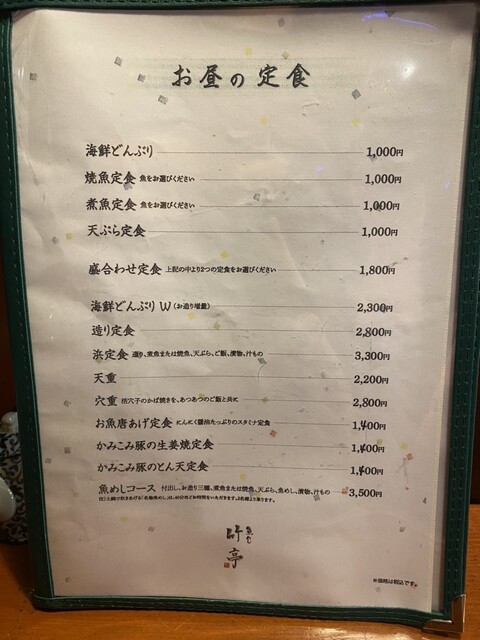 お昼の定食
海鮮どんぶり 1,000円
焼魚定食 魚をお選びください 1,000円
煮魚定食 魚をお選びください 1,000円
天ぷら定食 1,000円
盛合わせ定食 上記の中より2つの定食をお選びください 1,800円
海鮮どんぶりW（お造り増量） 2,300円
造り定食 2,800円
浜定食 造り、煮魚または焼魚、天ぷら、ご飯、漬物、汁もの 3,300円
天重 2,200円
穴重 活穴子のかば焼きを、あつあつのご飯と共に 2,800円
お魚唐あげ定食 にんにく醤油たっぷりのスタミナ定食 1,400円
かみこみ豚の生姜焼定食 1,400円
かみこみ豚のとん天定食 1,400円
魚めしコース 付出し、お造り三種、煮魚または焼魚、天ぷら、魚めし、漬物、汁もの 3,500円
注）土鍋で炊きあげる「名物魚めし」は、40分ほどお時間をいただきます。2名様より承ります。
亭
※価格は税込です。